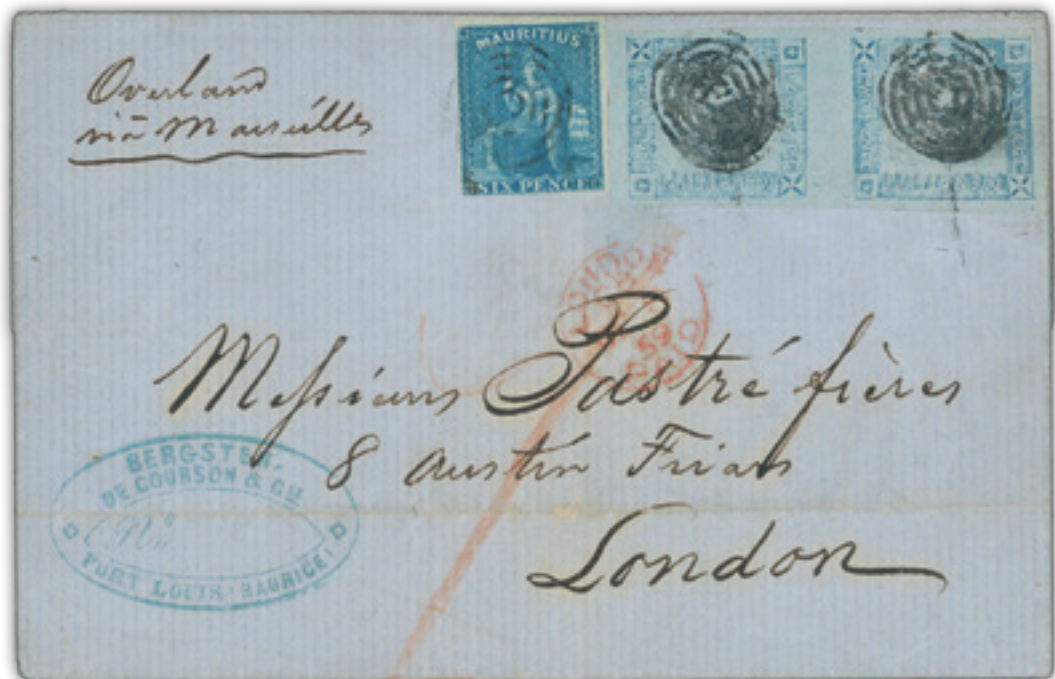 Overland
viâ Marseilles
MAURITIUS
SIX PENCE
LONDON
59
PAID
Messieurs Pastré frères
8 Austin Friars
London
BERGSTEN,
DE COURSON & Cie
PORT LOUIS (MAURICE)